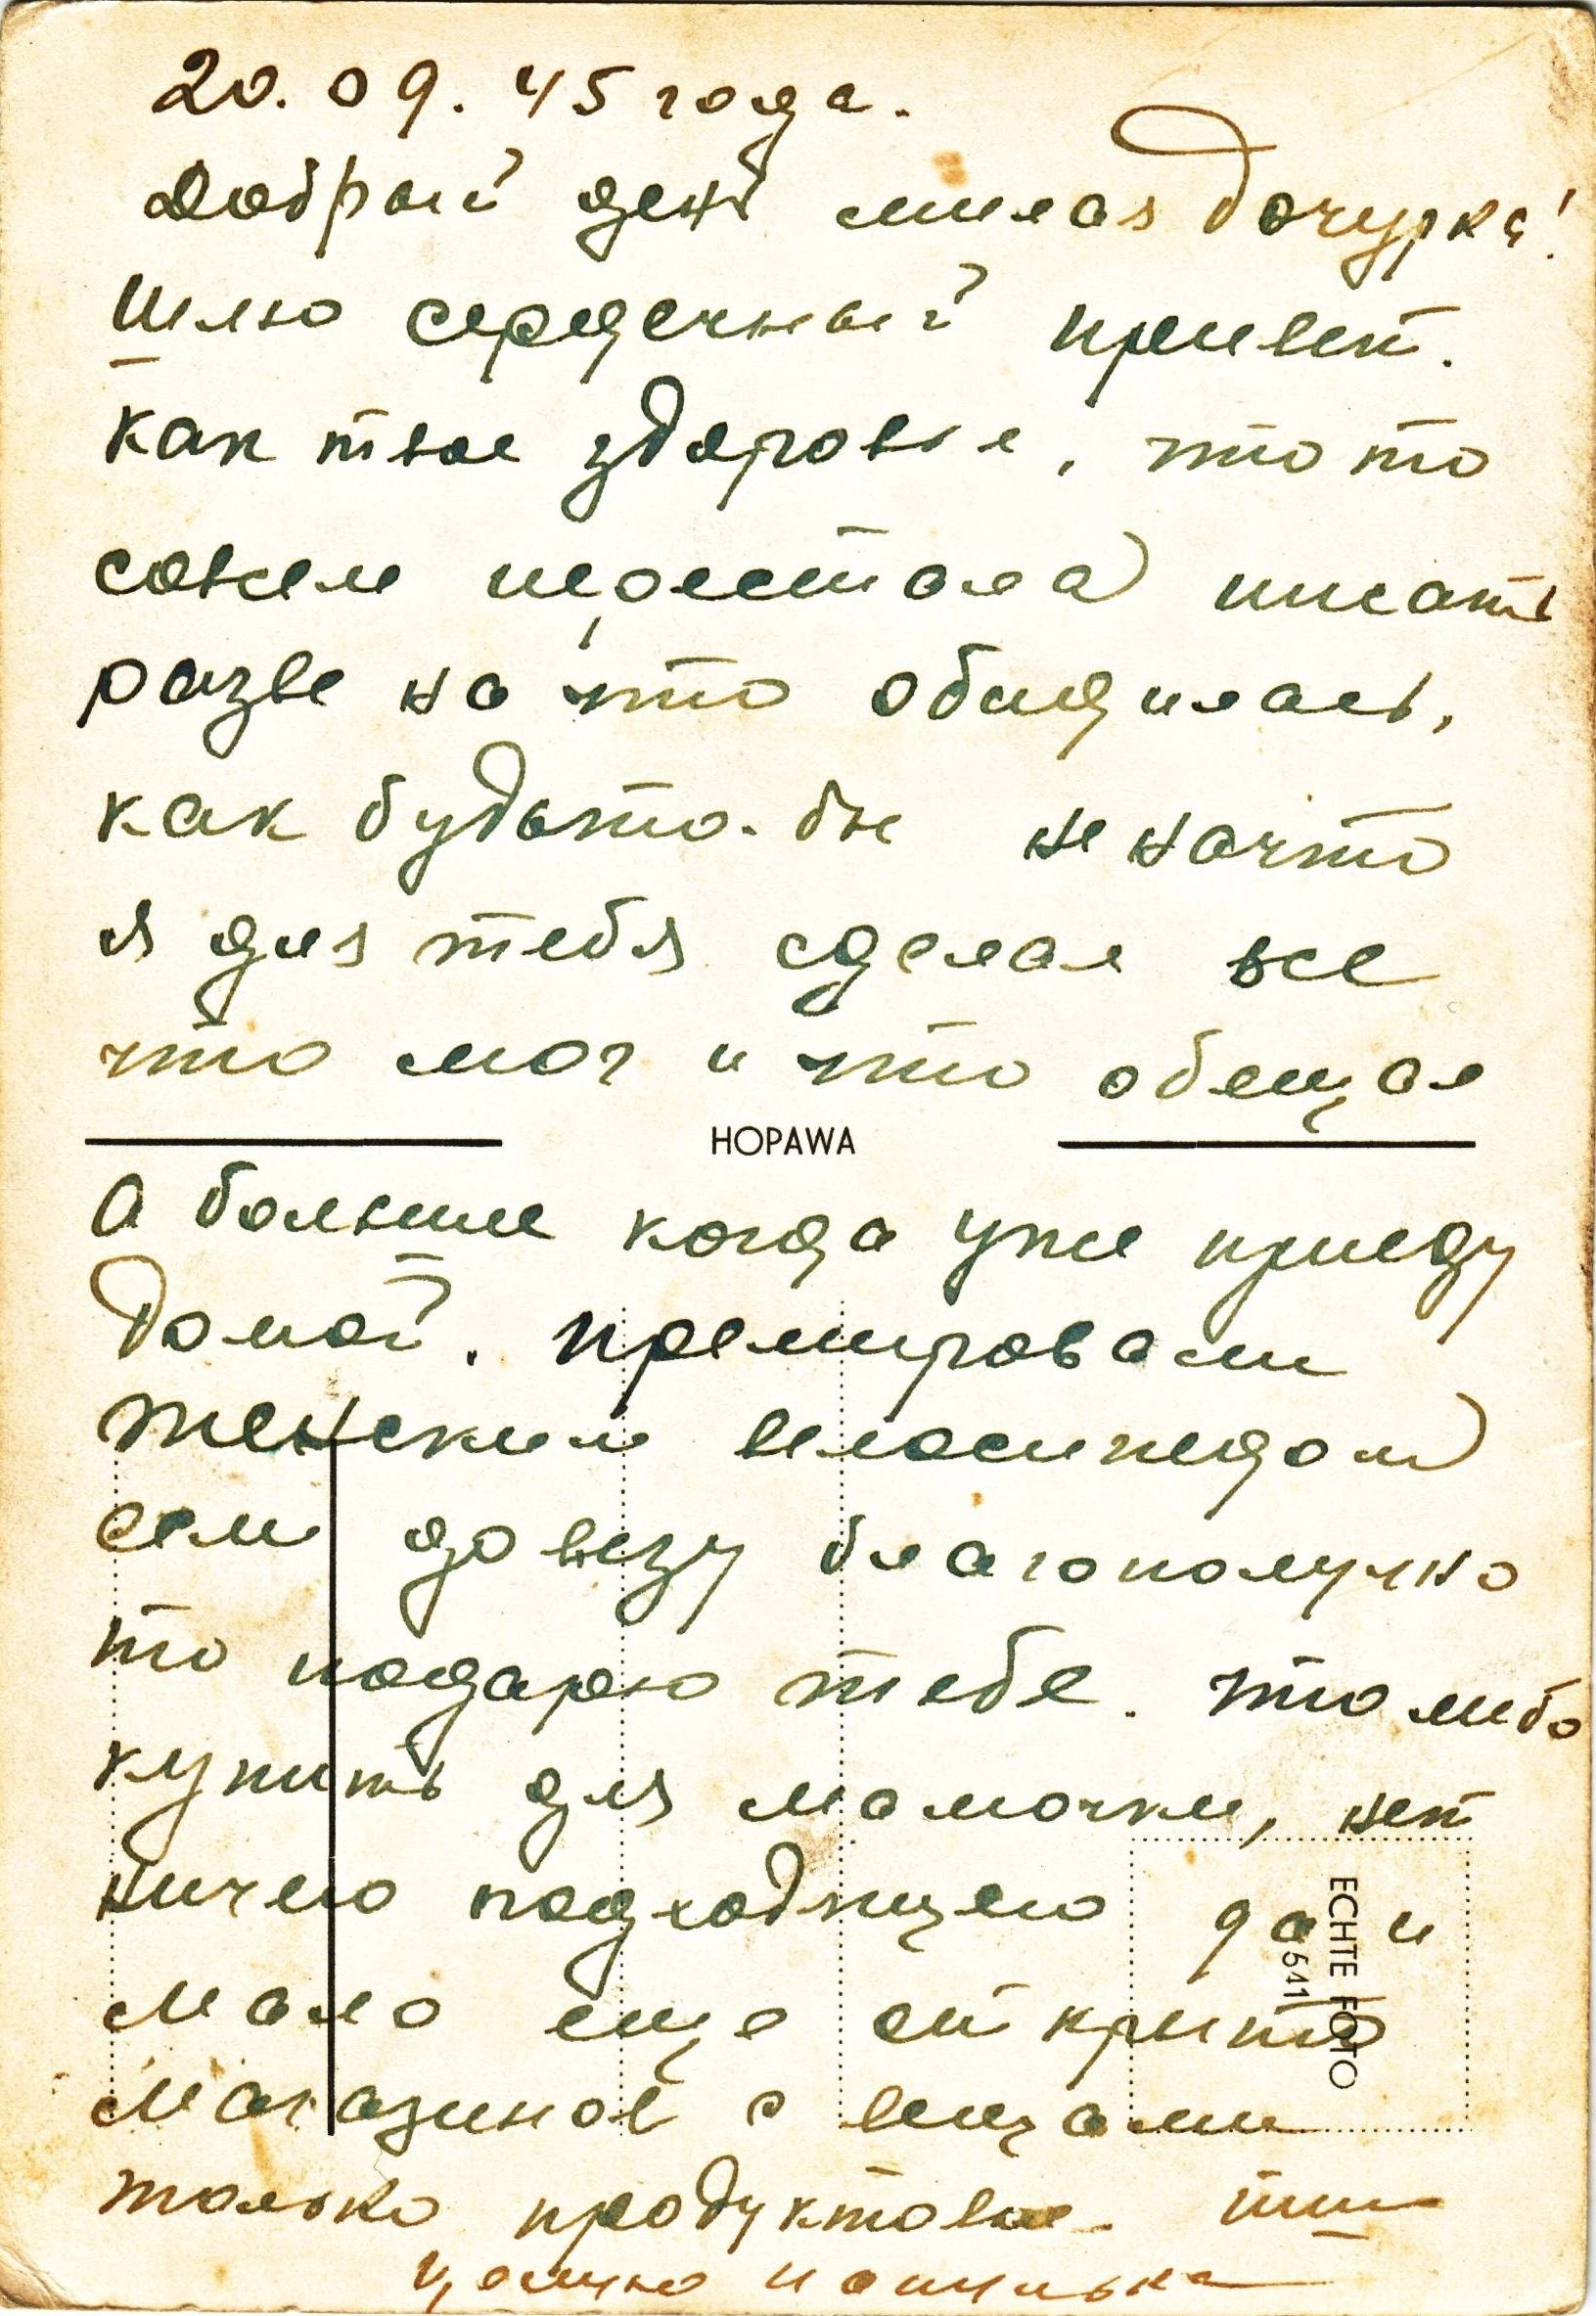 20.09.45 года.
Добрый день милая дочурка!
Шлю сердечный привет.
Как твое здоровье, что то
совсем перестала писать
разве на что обидилась,
как будьто-бы не начто
я для тебя сделал все
что мог и что обещал
HOPAWA
а больше когда уже приеду
домой. премировали
женским велосипедом
если довезу благополучно
то подарю тебе. что либо
купить для мамочки, нет
ничего подходящего да и
мало еще открыто
магазинов с вещами
только продуктовые. пиши
целую папулька
ECHTE FOTO
541